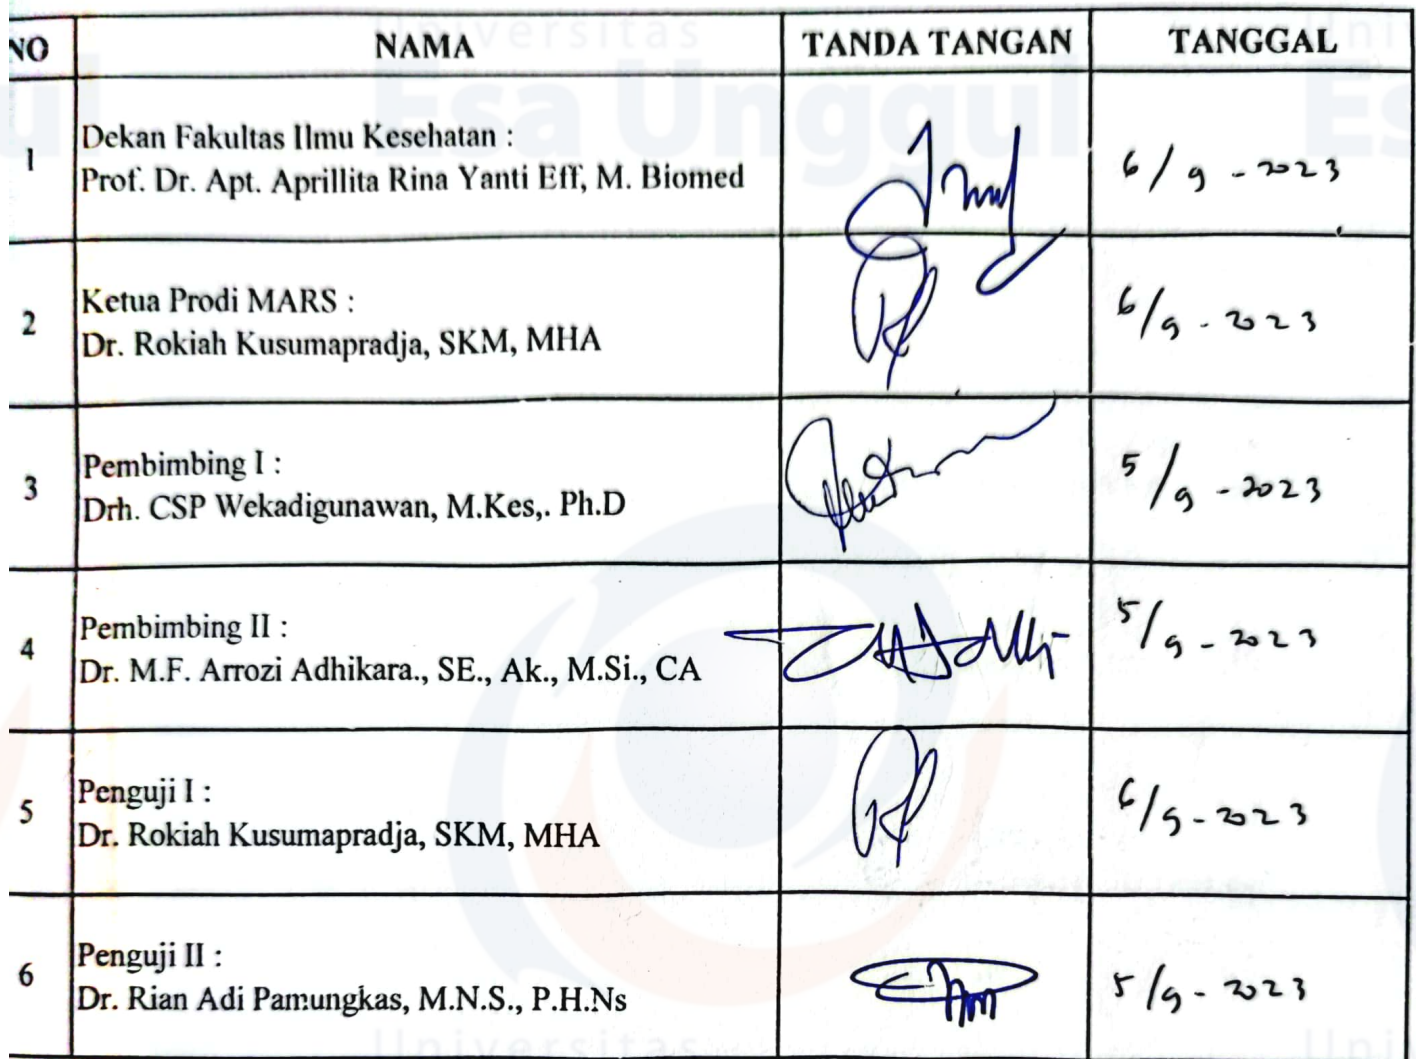 NO NAMA TANDA TANGAN TANGGAL
1 Dekan Fakultas Ilmu Kesehatan :
Prof. Dr. Apt. Aprillita Rina Yanti Eff, M. Biomed 6/9-2023
2 Ketua Prodi MARS :
Dr. Rokiah Kusumapradja, SKM, MHA 6/9-2023
3 Pembimbing I :
Drh. CSP Wekadigunawan, M.Kes,. Ph.D 5/9-2023
4 Pembimbing II :
Dr. M.F. Arrozi Adhikara., SE., Ak., M.Si., CA 5/9-2023
5 Penguji I :
Dr. Rokiah Kusumapradja, SKM, MHA 6/9-2023
6 Penguji II :
Dr. Rian Adi Pamungkas, M.N.S., P.H.Ns 5/9-2023
Universitas
Esa Unggul
Universitas